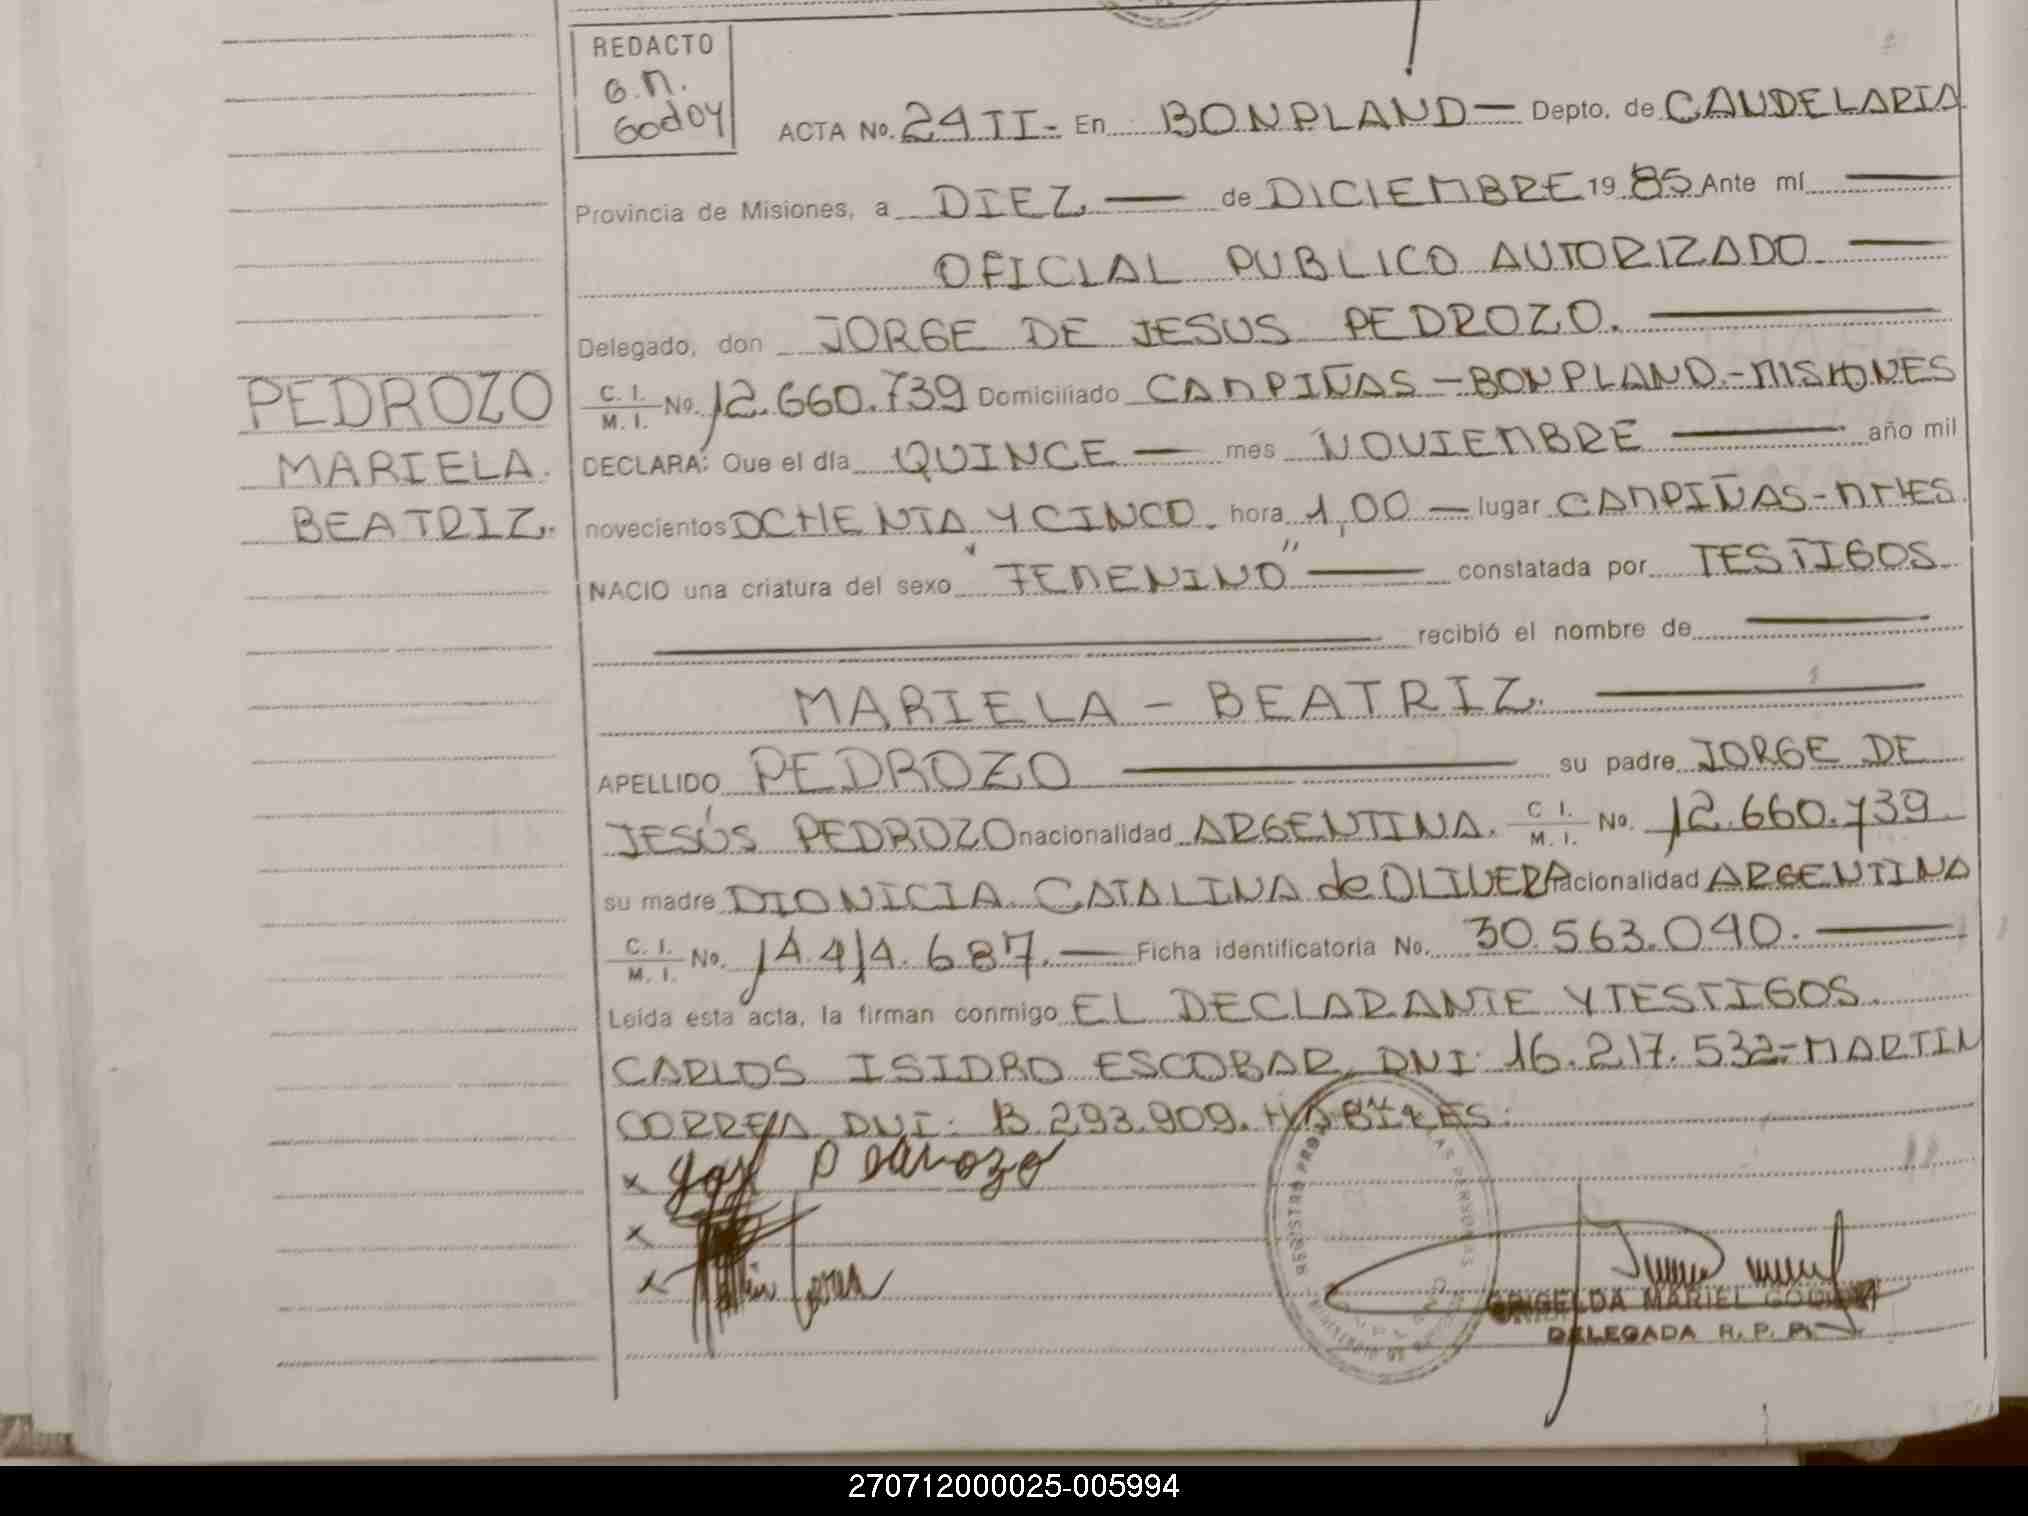 REDACTO
G.M.
Godoy
ACTA No. 24 II - En BONPLAND — Depto. de CANDELARIA
Provincia de Misiones, a DIEZ — de DICIEMBRE 19 85 Ante mí —
OFICIAL PUBLICO AUTORIZADO. —
Delegado, don JORGE DE JESUS PEDROZO. —
C. I. / M. I. No. 12.660.739 Domiciliado CAMPIÑAS - BONPLAND - MISIONES
DECLARA: Que el día QUINCE — mes NOVIEMBRE — año mil
novecientos OCHENTA Y CINCO. hora 1,00 — lugar CAMPIÑAS - MNES
NACIO una criatura del sexo "FEMENINO" — constatada por TESTIGOS
— recibió el nombre de —
MARIELA - BEATRIZ. —
APELLIDO PEDROZO — su padre JORGE DE
JESÚS PEDROZO nacionalidad ARGENTINA. C I. / M. I. No. 12.660.739
su madre DIONICIA CATALINA de OLIVERA nacionalidad ARGENTINA
C. I. / M. I. No. 14.414.687. — Ficha identificatoria No. 30.563.040. —
Leída esta acta, la firman conmigo EL DECLARANTE Y TESTIGOS.
CARLOS ISIDRO ESCOBAR, DNI: 16.217.532 - MARTIN
CORREA DNI: 13.293.909. HABILES.
PEDROZO
MARIELA.
BEATRIZ.
GRISELDA MARIEL GODOY
DELEGADA R. P. P.
270712000025-005994